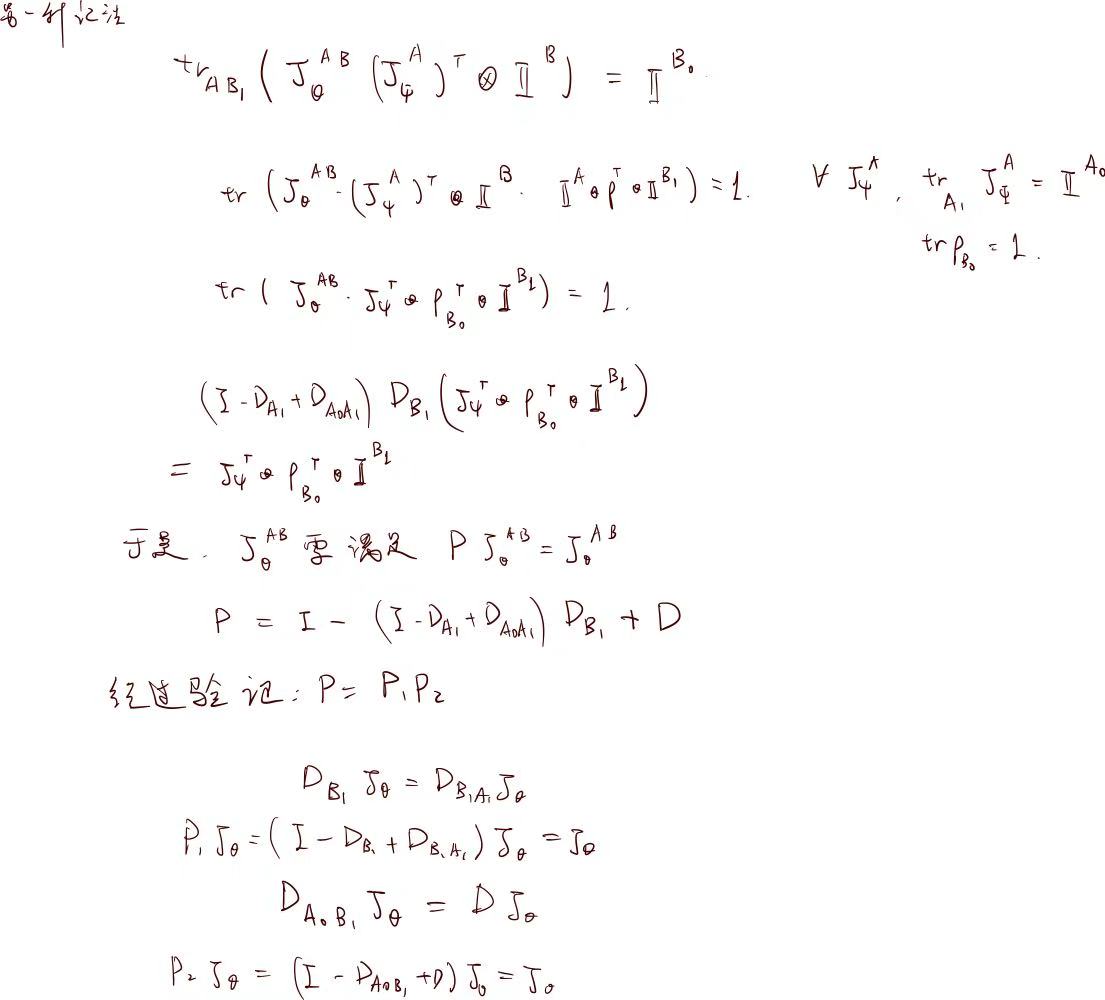 第一种记法
tr_{AB₁} ( J_θ^{AB} (J_Ψ^A)^T ⊗ 𝕀^B ) = 𝕀^{B₀}.
tr ( J_θ^{AB} · (J_Ψ^A)^T ⊗ 𝕀^B · 𝕀^A ⊗ ρ^T ⊗ 𝕀^{B₁} ) = 1. ∀ J_Ψ^A , tr_{A₁} J_Ψ^A = 𝕀^{A₀}
tr ρ_{B₀} = 1.
tr ( J_θ^{AB} · J_Ψ^T ⊗ ρ_{B₀}^T ⊗ 𝕀^{B₁} ) = 1.
(I - D_{A₁} + D_{A₀A₁}) D_{B₁} ( J_Ψ^T ⊗ ρ_{B₀}^T ⊗ 𝕀^{B₁} )
= J_Ψ^T ⊗ ρ_{B₀}^T ⊗ 𝕀^{B₁}
于是. J_θ^{AB} 需满足 P J_θ^{AB} = J_θ^{AB}
P = I - (I - D_{A₁} + D_{A₀A₁}) D_{B₁} + D
经过验记: P = P₁P₂
D_{B₁} J_θ = D_{B₁A₁} J_θ
P₁ J_θ = ( I - D_{B₁} + D_{B₁A₁} ) J_θ = J_θ
D_{A₀B₁} J_θ = D J_θ
P₂ J_θ = (I - D_{A₀B₁} + D) J_θ = J_θ